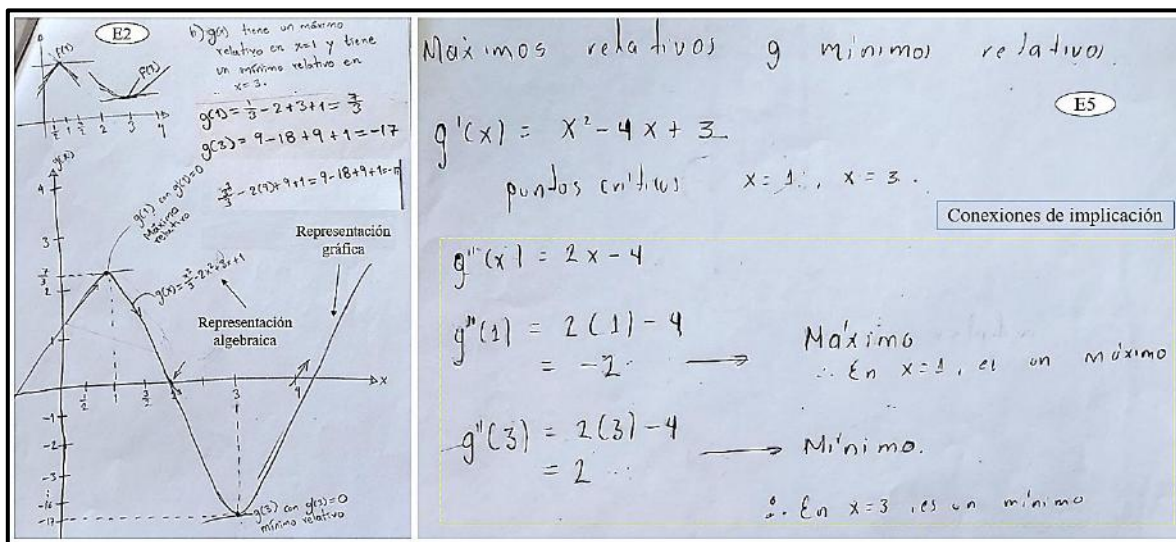 E2
f(1)
b) g(x) tiene un máximo
relativo en x=1 y tiene
un mínimo relativo en
x=3.
g(1) = 1/3 - 2 + 3 + 1 = 7/3
g(3) = 9 - 18 + 9 + 1 = -17
f(3)
1/2 1 3/2 2 3 4
g(x)
4
3
7/3
2
1
g(1) con g'(1)=0
Máximo
relativo
g(x) = x³/3 - 2x² + 3x + 1
Representación
gráfica
Representación
algebraica
1/2 1 3/2 3 4 x
-1
-2
-3
-16
-17
g(3) con g'(3)=0
mínimo relativo
Máximos relativos y mínimos relativos.
E5
g'(x) = x² - 4x + 3
puntos críticos x = 1, x = 3.
Conexiones de implicación
g''(x) = 2x - 4
g''(1) = 2(1) - 4
= -2 → Máximo
∴ En x=1, es un máximo
g''(3) = 2(3) - 4
= 2 → Mínimo.
∴ En x=3, es un mínimo